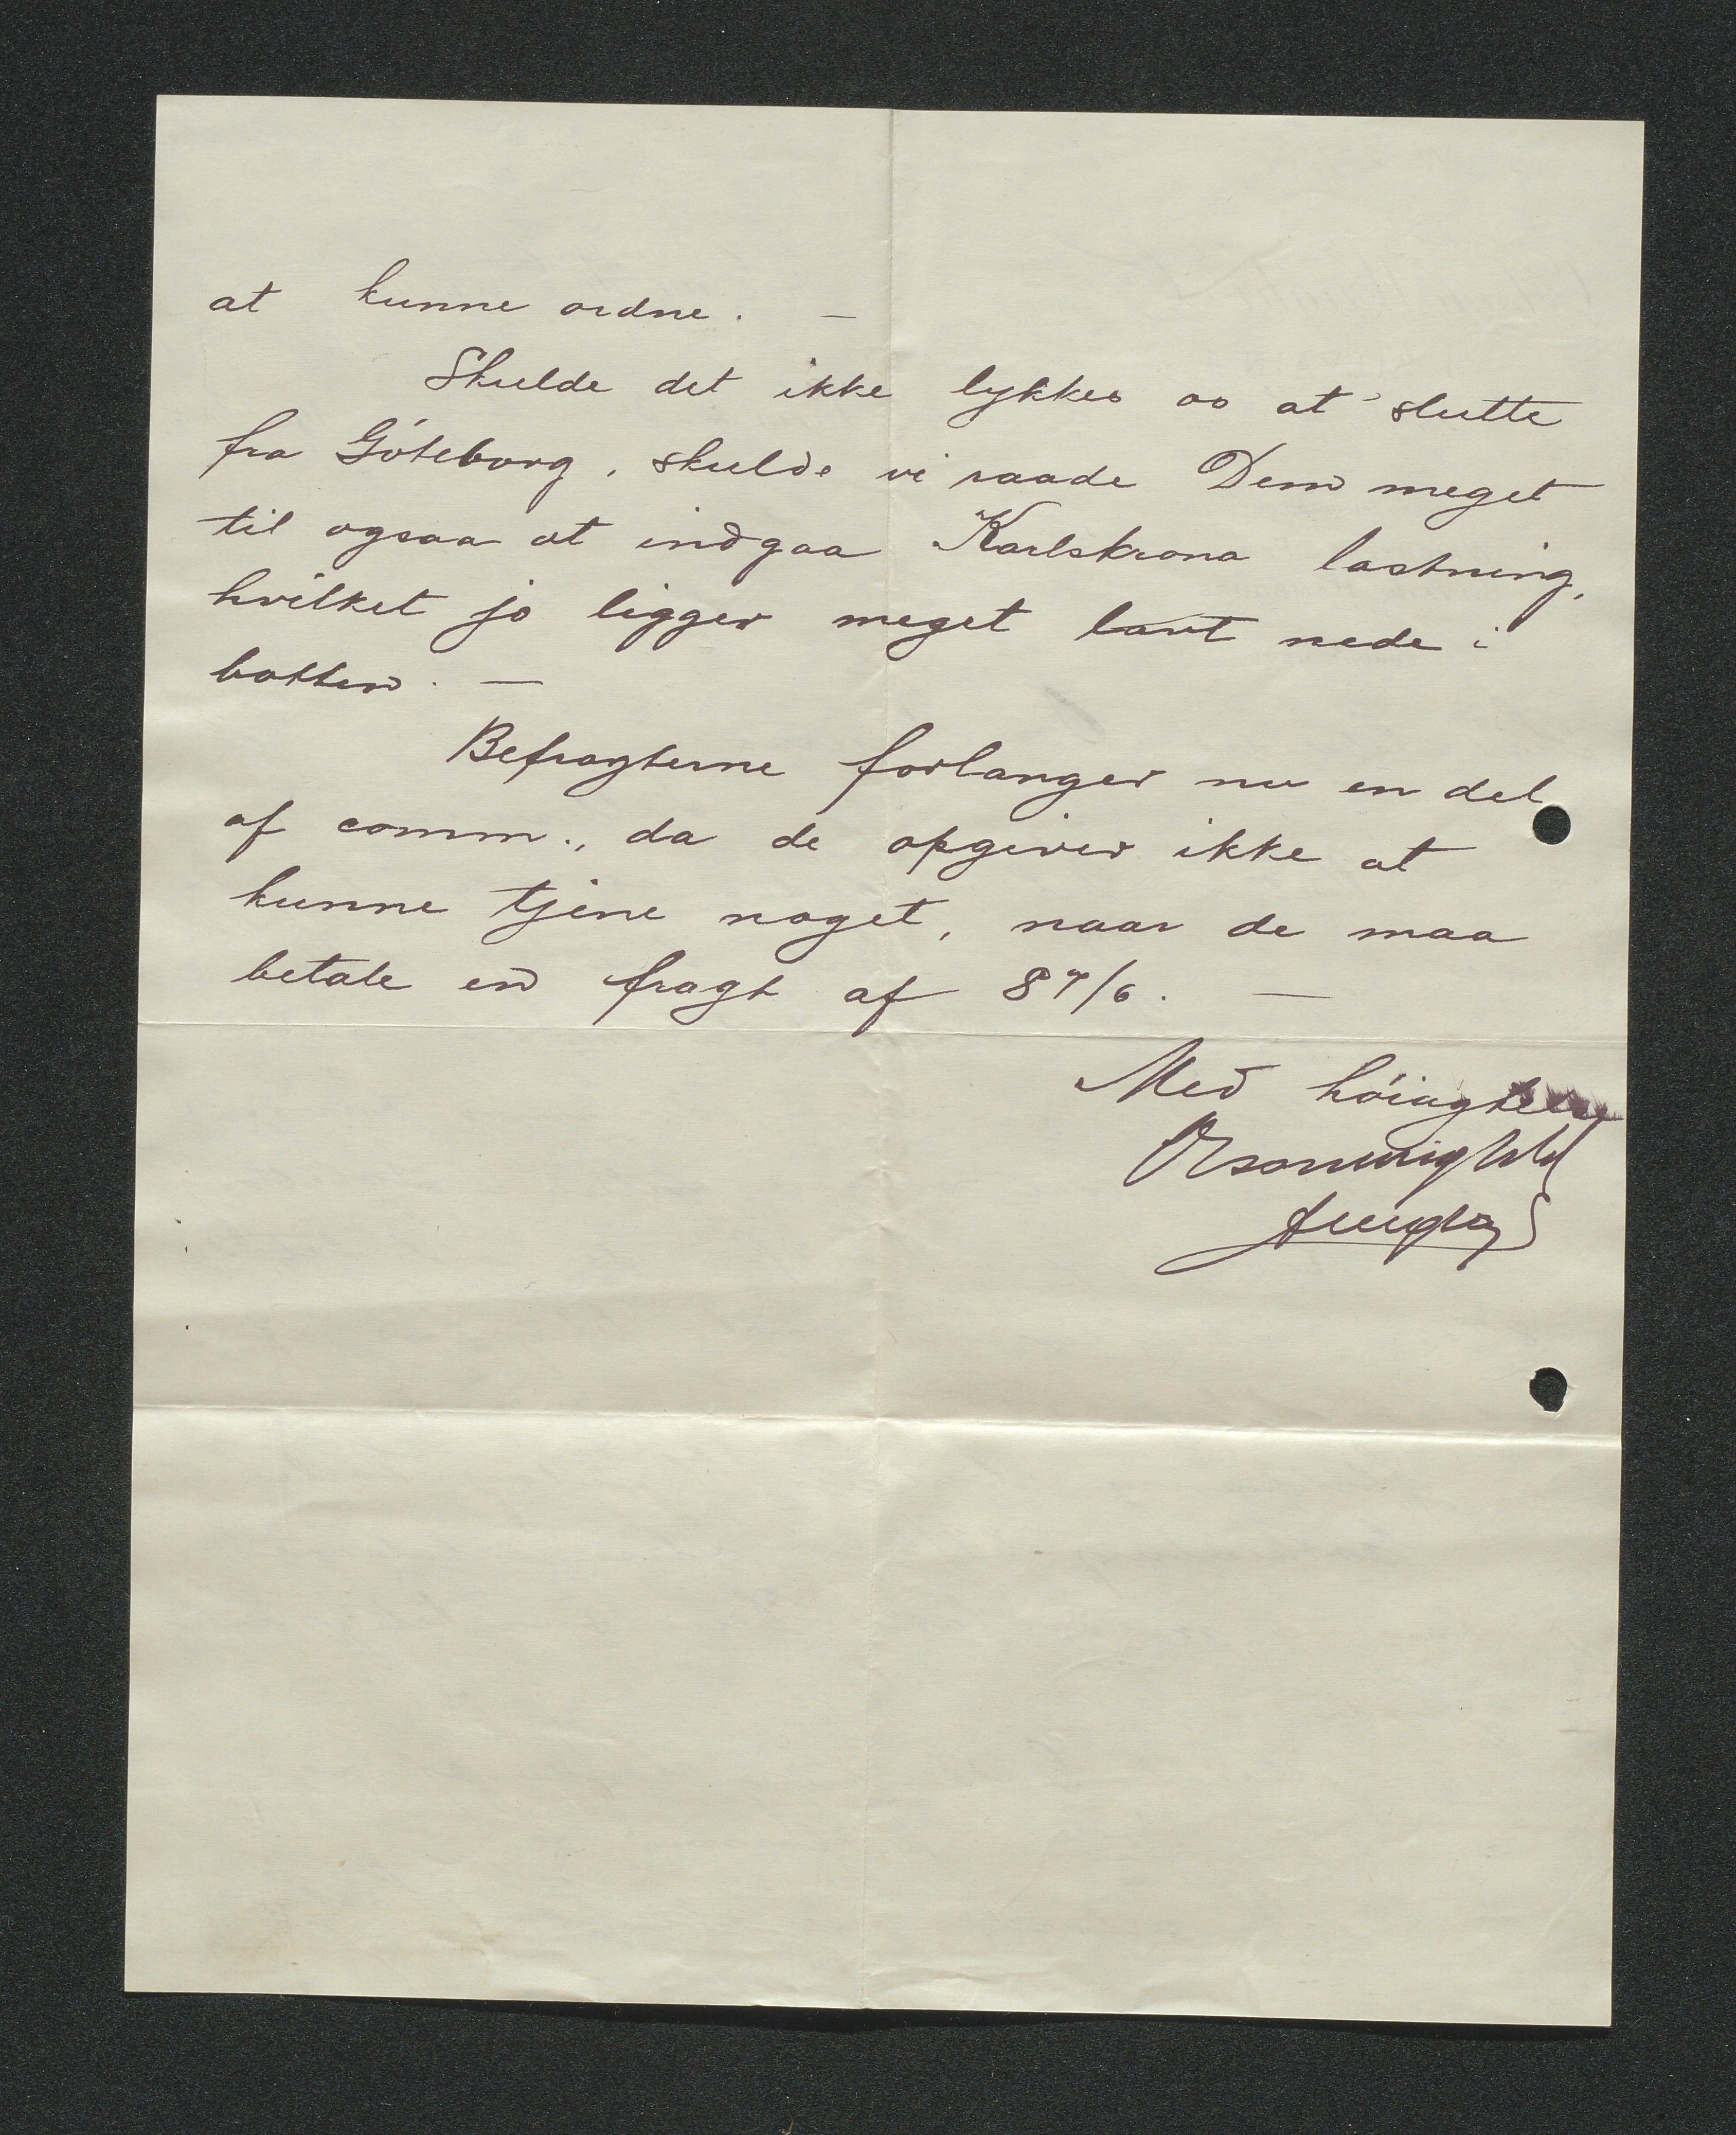 at kunne ordne. —
Skulde det ikke lykkes os at slutte
fra Göteborg, skulde vi raade Dem meget
til ogsaa at indgaa Karlskrona lastning,
hvilket jo ligger meget lavt nede i
botten. —
Befragterne forlanger nu en del
af comm., da de opgiver ikke at
kunne tjene noget, naar de maa
betale en fragt af 87/6. —
Med höiagtelse